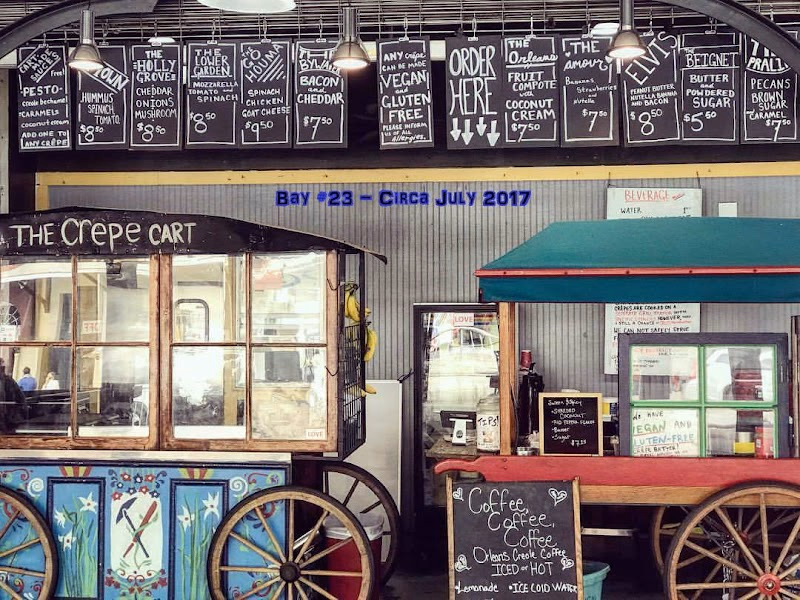 PESTO
creole bechamel
CARAMEL
coconut cream
ADD ONE TO
ANY CRÊPE
HUMMUS
SPINACH
TOMATO
$8 50
THE
HOLLY
GROVE
CHEDDAR
ONIONS
MUSHROOM
$8 50
THE
LOWER
GARDEN
MOZZARELLA
TOMATO and
SPINACH
$8 50
THE
HOUMA
SPINACH
CHICKEN
GOAT CHEESE
$9 50
THE
BYWATER
BACON
and
CHEDDAR
$7 50
ANY Crêpe
CAN BE MADE
VEGAN
and
GLUTEN
FREE
PLEASE INFORM
US OF ALL
Allergies.
ORDER
HERE
THE
Orleans
FRUIT
COMPOTE
with
COCONUT
CREAM
$7 50
THE
amour
Bananas
Strawberries
and
Nutella
$7
ELVIS
PEANUT BUTTER
NUTELLA BANANA
AND BACON
$8 50
THE
BEIGNET
BUTTER
and
POWDERED
SUGAR
$5 50
PECANS
BROWN
SUGAR
CARAMEL
$7
Bay #23 - Circa July 2017
BEVERAGE
WATER
THE Crêpe CART
LOVE
TIPS
LOVE
CRÊPES ARE COOKED ON A
HOWEVER,
WE CAN NOT SAFELY SERVE
WE HAVE
VEGAN AND
GLUTEN-FREE
Coffee,
Coffee,
Coffee
Orleans Creole Coffee
ICED or HOT
Lemonade • ICE COLD WATER